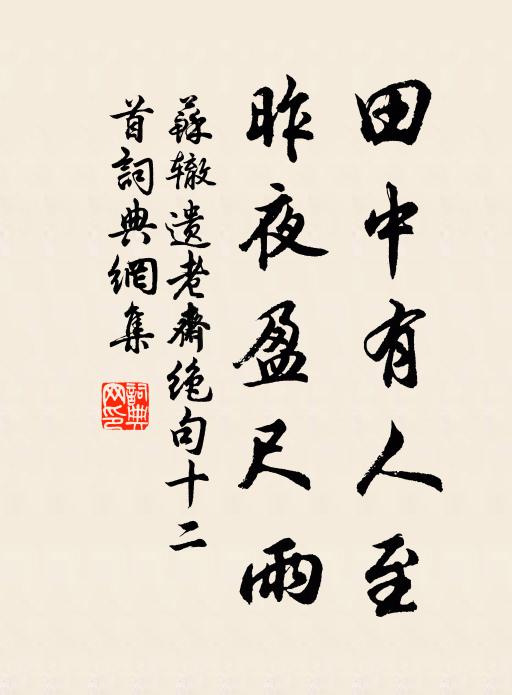 田中有人至
昨夜盈尺雨
蘇辙遺老齋絶句十二
首詞典網集
詞典
网印